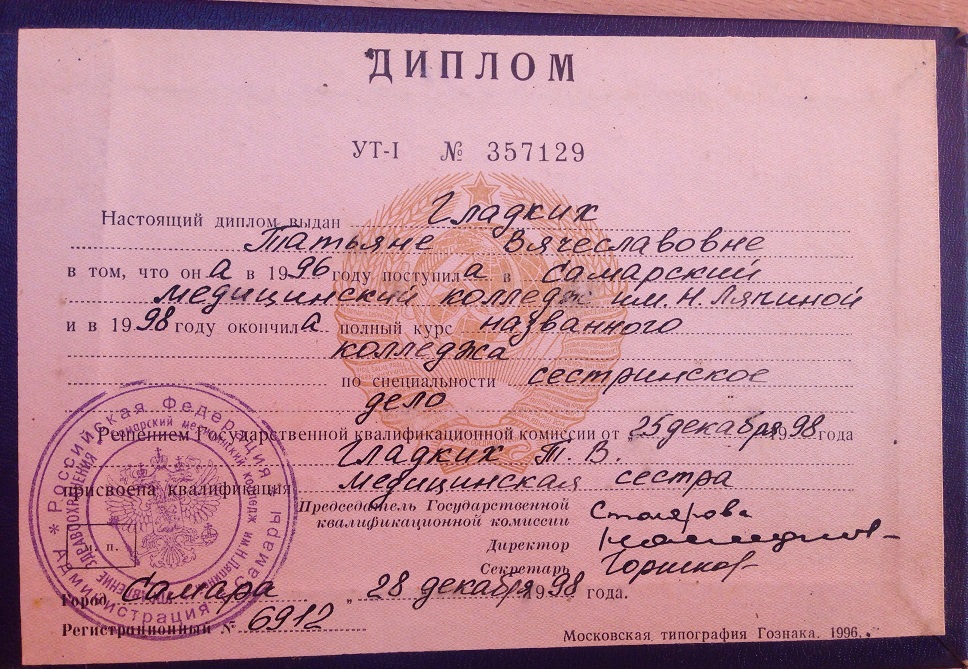 ДИПЛОМ
УТ-I № 357129
Настоящий диплом выдан Гладких
Татьяне Вячеславовне
в том, что он а в 1996 году поступил а в Самарский
медицинский колледж им. Н. Ляпиной
и в 1998 году окончил а полный курс названного
колледжа
по специальности сестринское
дело
Решением Государственной квалификационной комиссии от „25 декабря 1998 года
Гладких Т. В.
присвоена квалификация медицинская сестра
Председатель Государственной
квалификационной комиссии Столярова
Директор
Секретарь Горшков
Город Самара „ 28 декабря 1998 года.
Регистрационный № 6912
Московская типография Гознака. 1996.
м. п.
* Российская Федерация * Администрация Самары
ЗДРАВООХРАНЕНИЯ Самарский медицинский колледж им. Н. Ляпиной